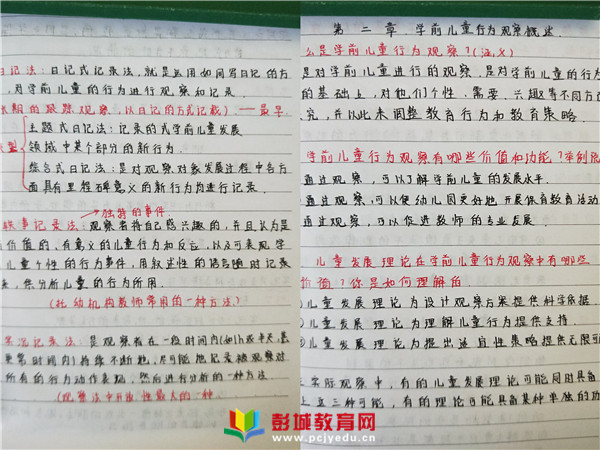 日记法：日记式记录法，就是运用如同写日记的方
，对学前儿童的行为进行观察和记录．
长期的跟踪观察，以日记的方式记载）——最早
类型
主题式日记法：记录的式学前儿童发展
领域中某个部分的新行为．
综合式日记法：是对观察对象发展过程中各方
面具有里程碑意义的新行为均进行记录．
独特的事件
轶事记录法：观察者将自己感兴趣的，并且认为是
有价值的，有意义的儿童行为和反应，以及可表现学
儿童个性的行为事件，用叙述性的语言随时记录
来，供分析儿童的行为所用．
（托幼机构教师常用的一种方法）
实况记录法：是观察者在一段时间内（如1h或半天，甚
更常时间内）持续不断地，尽可能地记录被观察对
所有的行为动作表现，然后进行分析的一种方法
（观察法中开放性最大的一种
第二章 学前儿童行为观察概述．
么是学前儿童行为观察？（涵义）
是对学前儿童进行的观察，是对学前儿童的行为
的基础上，对他们个性、需要、兴趣等不同方面
究，并以此来调整教育行为和教育策略．
学前儿童行为观察有哪些价值和功能？举例说
通过观察，可以了解学前儿童的发展水平．
通过观察，可以使幼儿园更好地开展保育教育活动
通过观察，可以促进教师的专业发展．
儿童发展理论在学前儿童行为观察中有哪些
价值？你是如何理解的
儿童发展理论为设计观察方案提供科学依据．
儿童发展理论为理解儿童行为提供支持．
儿童发展理论为提出适宜性策略提供无限可
实际观察中，有的儿童发展理论可能同时具备
上述三种可能，有的理论可能具备某种单独的功
彭城教育网
www.pcjyedu.cn